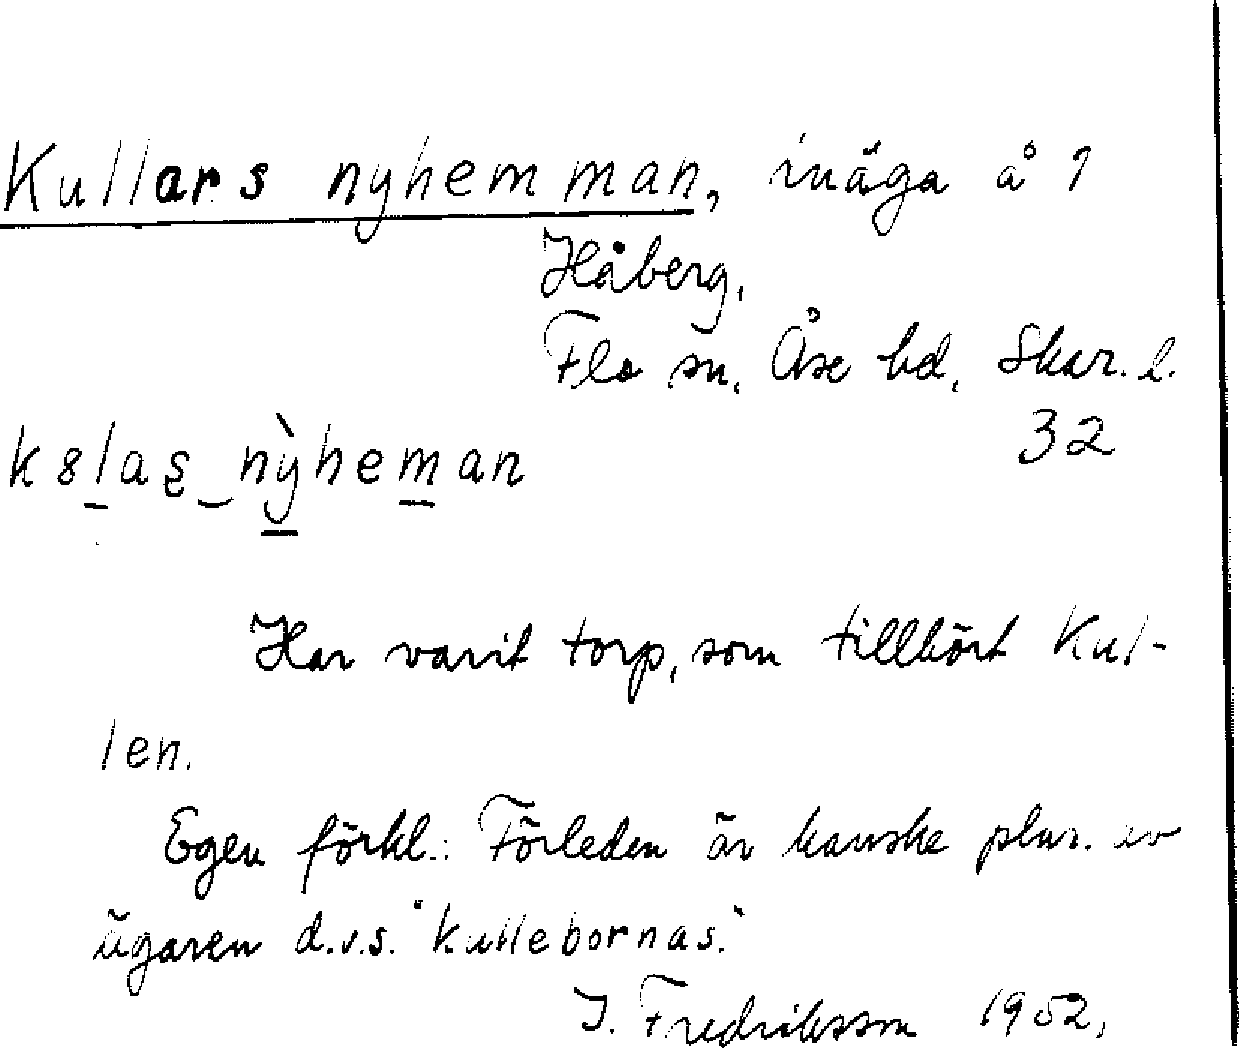 Kullars nyhemman, inäga å 1
Håberg,
Flo sn, Åse hd, Skar. l.
32
k8las nỳheman
Har varit torp, som tillhört Kul-
len.
Egen förkl.: Förleden är kanske plur. av
ägaren d.v.s. "kullebornas."
I. Fredriksson 1952,